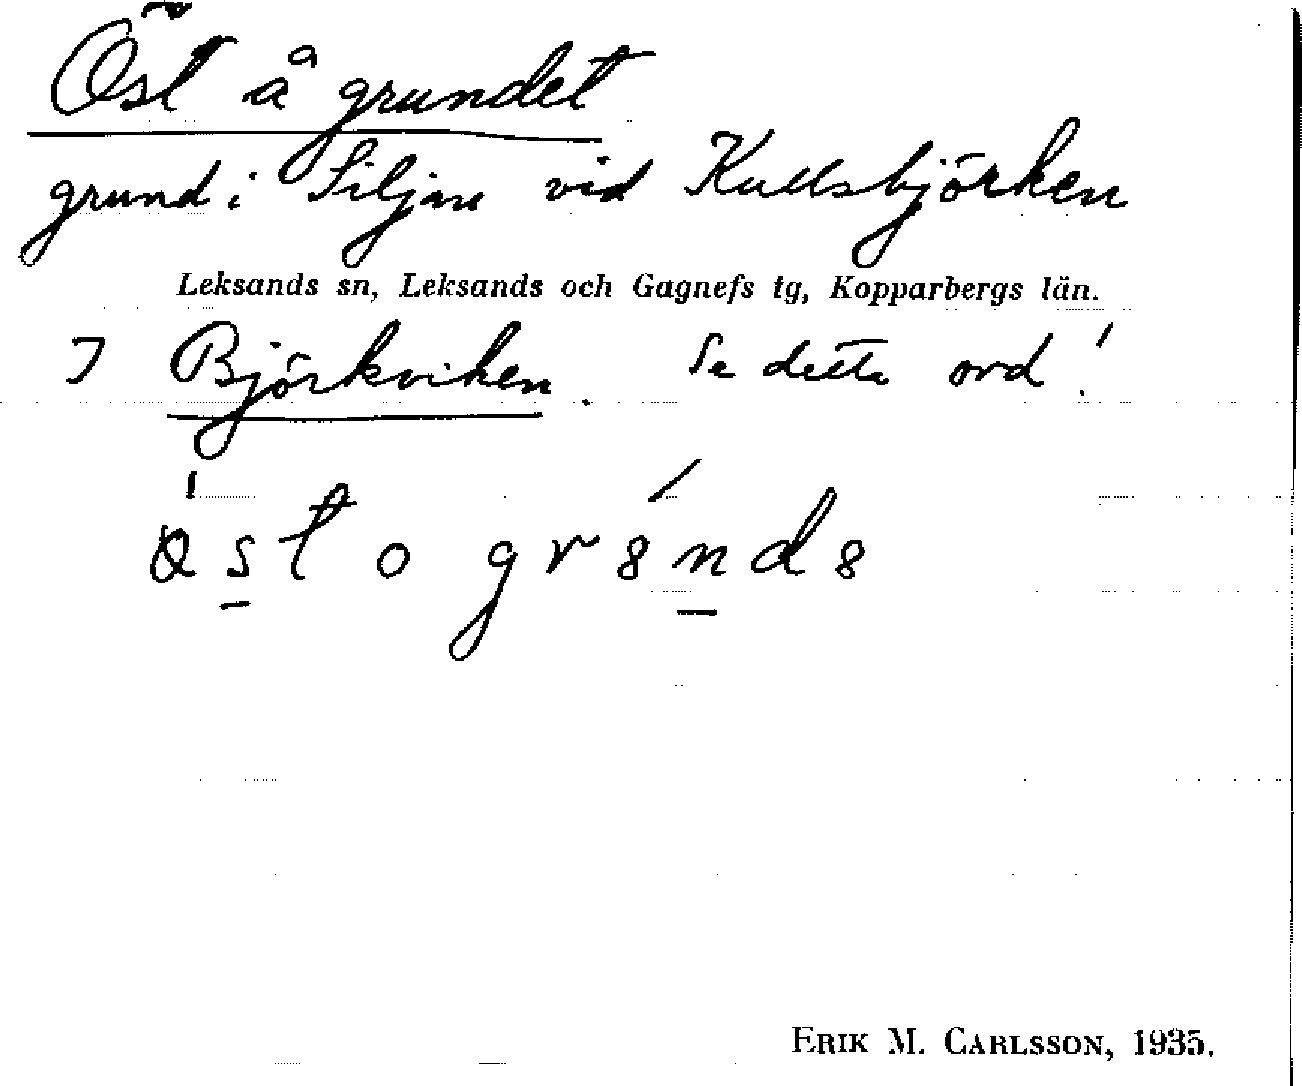 Öst å grundet
grund i Siljan vid Kullsbjörken
Leksands sn, Leksands och Gagnefs tg, Kopparbergs län.
I Björkviken. Se detta ord!
ERIK M. CARLSSON, 1935.